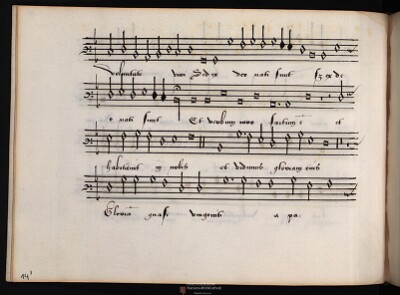 Voluntate viri Sed ex deo nati sunt Sz ex de
o nati sunt Et verbum caro factum e et
habitavit in nobis et vidimus gloriam eius
Gloria quasi unigeniti a pa
14v